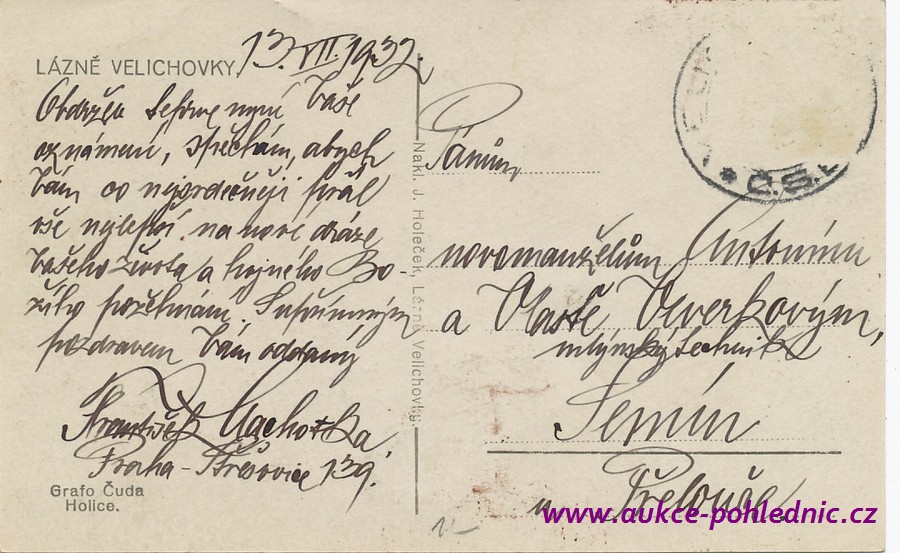 LÁZNĚ VELICHOVKY, 13. VII. 1932.
Obdržev teprve nyní Vaše
oznámení, spěchám, abych
Vám co nejsrdečněji přál
vše nejlepší na nové dráze
Vašeho života a hojného Bo-
žího požehnání. S upřímným
pozdravem Vám oddaný
František
Praha - Střešovice 139.
Grafo Čuda
Holice.
Nakl. J. Holeček, Lázně Velichovky.
* Č.S.
Pánům
novomanželům Antonínu
a Vlastě Verkovým,
mlýnský technik
Semín
u Přelouče
1.-
www.aukce-pohlednic.cz